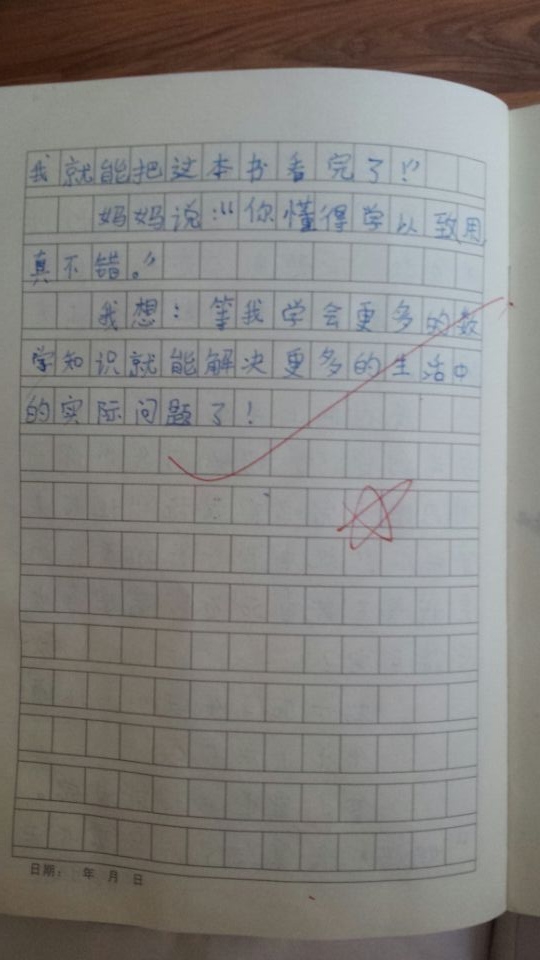 我就能把这本书看完了！”
妈妈说：“你懂得学以致用，
真不错。”
我想：等我学会更多的数
学知识就能解决更多的生活中
的实际问题了！
日期： 年 月 日